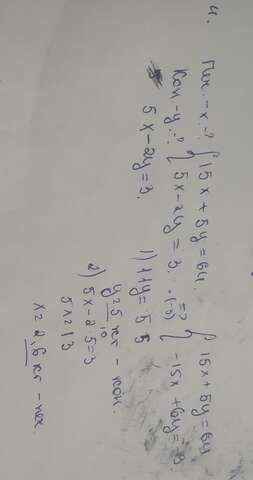 4.
Печ. - x. -?
Кон. - y. -?
{ 15x + 5y = 64.
{ 5x - 2y = 3. · (-3)
=>
{ 15x + 5y = 64
{ -15x + 6y = -9.
5x - 2y = 3.
1) 11y = 55
y = 5 кг - кон.
2) 5x - 2·5 = 3
10
5x = 13
x = 2,6 кг - печ.